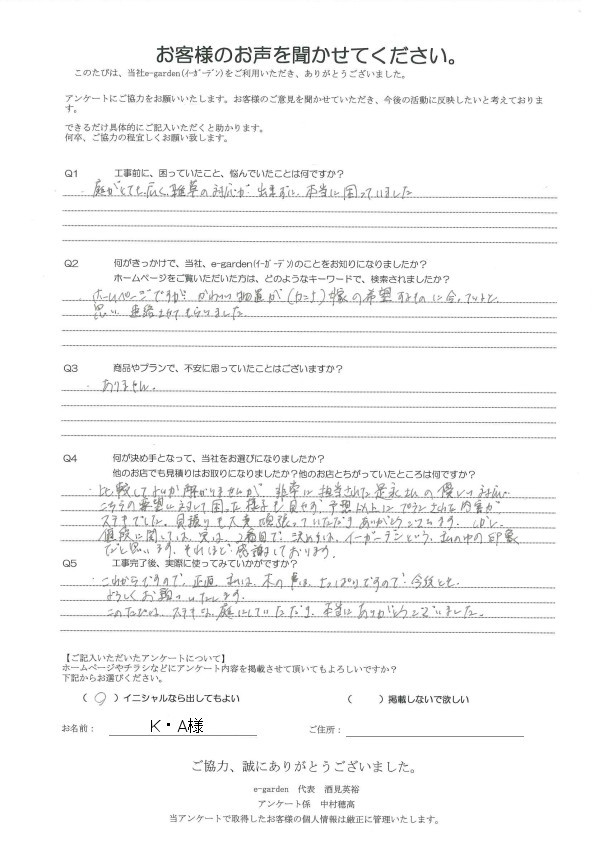 お客様のお声を聞かせてください。
このたびは、当社e-garden(ｲｰｶﾞｰﾃﾞﾝ)をご利用いただき、ありがとうございました。
アンケートにご協力をお願いいたします。お客様のご意見を聞かせていただき、今後の活動に反映したいと考えておりま
す。
できるだけ具体的にご記入いただくと助かります。
何卒、ご協力の程宜しくお願い致します。
Q1 工事前に、困っていたこと、悩んでいたことは何ですか？
・庭がとても広く、雑草の対応が出来ずに、本当に困っていました
Q2 何がきっかけで、当社、e-garden(ｲｰｶﾞｰﾃﾞﾝ)のことをお知りになりましたか？
ホームページをご覧いただいた方は、どのようなキーワードで、検索されましたか？
・ホームページですが かわいい物置が (カンナ) 嫁の希望するものに合っていたと
思い 連絡させてもらいました
Q3 商品やプランで、不安に思っていたことはございますか？
・ありません。
Q4 何が決め手となって、当社をお選びになりましたか？
他のお店でも見積りはお取りになりましたか?他のお店とちがっていたところは何ですか？
・比較して 解かりませんが、非常に担当された是永さんの優しい対応
こちらの要望に対して困った様子も見せず、予想以上にプランされた内容が
ステキでした。見積りも大変頑張っていただき、ありがとうございます。
値段に関しては、実は、2番目で、決め手は、イーガーデンという、私の中の印象
だと思います。それほど感謝しております。
Q5 工事完了後、実際に使ってみていかがですか？
・これからですので、正直、私は、木の事は、さっぱりですので、今後とも
よろしくお願いいたします。
このたびは、ステキな庭にしていただき、本当にありがとうございました。
【ご記入いただいたアンケートについて】
ホームページやチラシなどにアンケート内容を掲載させて頂いてもよろしいですか？
下記からお選びください。
（ ○ ）イニシャルなら出してもよい （ ）掲載しないで欲しい
お名前： K・A様 ご住所：
ご協力、誠にありがとうございました。
e-garden 代表 酒見英裕
アンケート係 中村穂高
当アンケートで取得したお客様の個人情報は厳正に管理いたします。